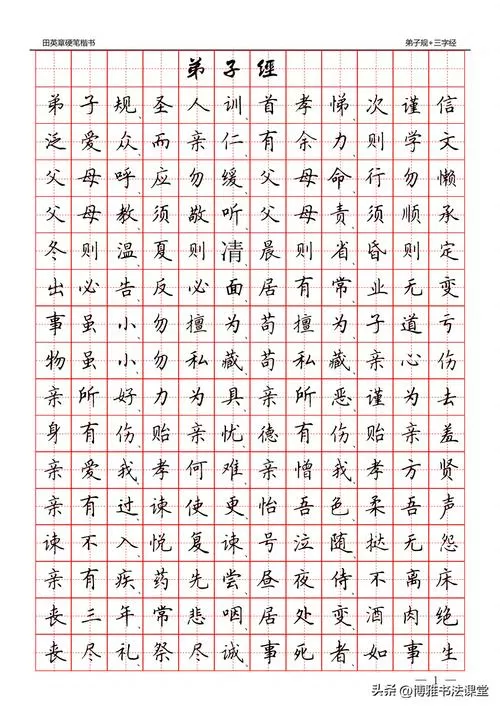 田英章硬笔楷书 弟子规+三字经
弟子經
弟子规、圣人训首孝悌、次谨信
泛爱众、而亲仁有余力、则学文
父母呼、应勿缓父母命、行勿懒
父母教、须敬听父母责、须顺承
冬则温、夏则凊晨则省、昏则定
出必告、反必面居有常、业无变
事虽小、勿擅为苟擅为、子道亏
物虽小、勿私藏苟私藏、亲心伤
亲所好、力为具亲所恶、谨为去
身有伤、贻亲忧德有伤、贻亲羞
亲爱我、孝何难亲憎我、孝方贤
亲有过、谏使更怡吾色、柔吾声
谏不入、悦复谏号泣随、挞无怨
亲有疾、药先尝昼夜侍、不离床
丧三年、常悲咽居处变、酒肉绝
丧尽礼、祭尽诚事死者、如事生
— 1 —
头条@博雅书法课堂